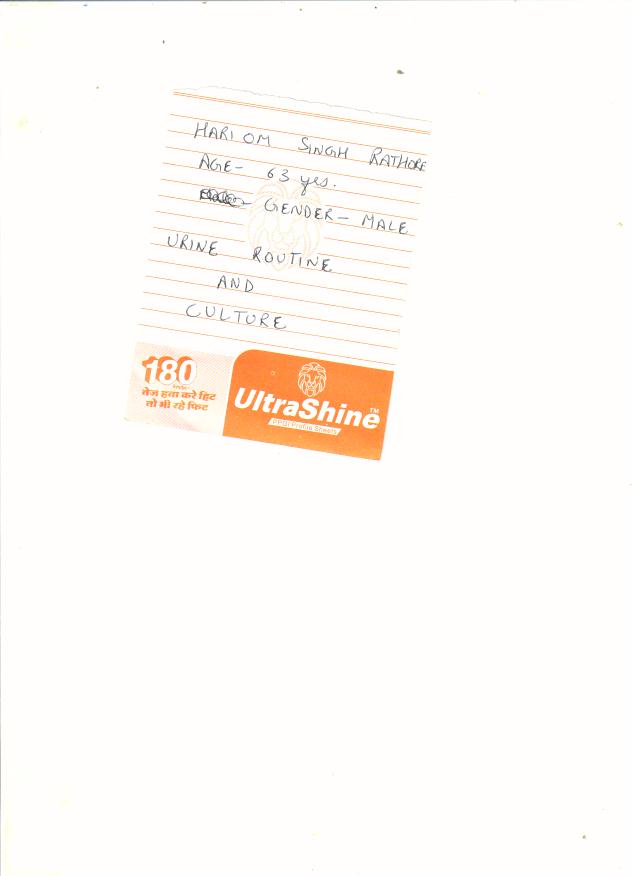 HARI OM SINGH RATHORE
AGE- 63 yes.
GENDER- MALE
URINE ROUTINE
AND
CULTURE
180
तेज हवा करे हिट
तो भी रहे फिट
UltraShine™
PPGI Profile Sheets